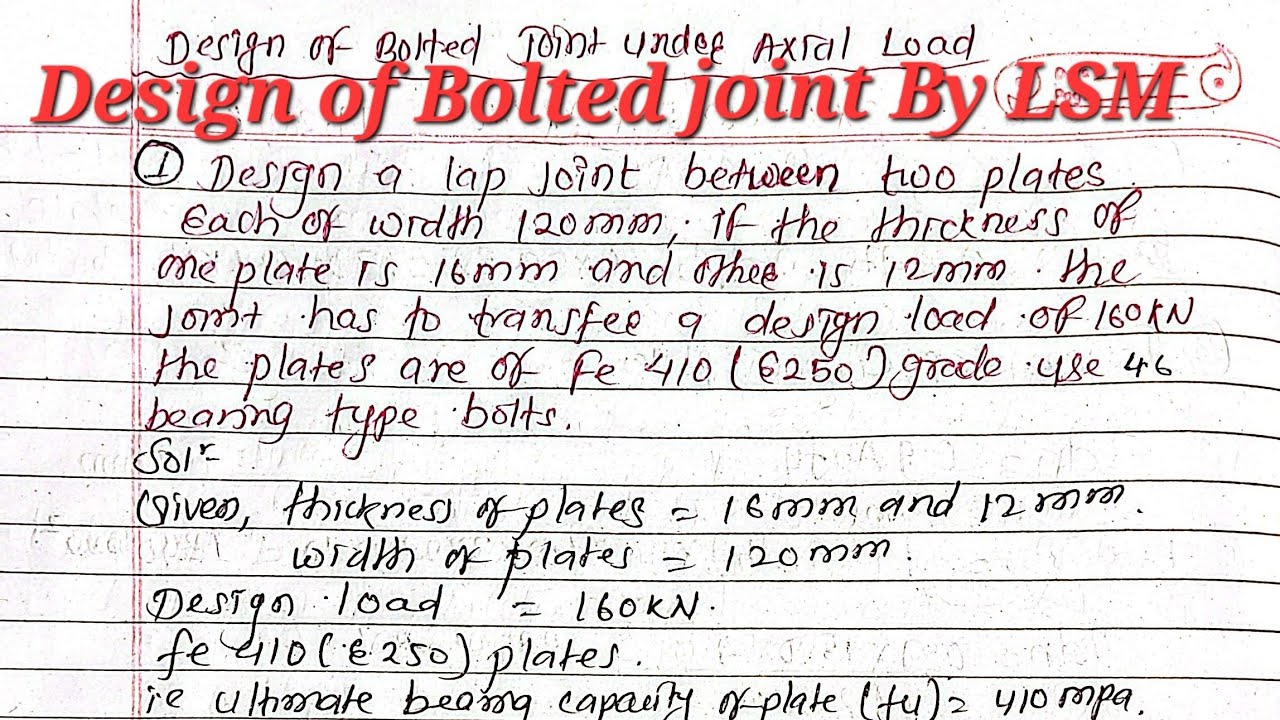 Design of Bolted Joint under Axial Load
Design of Bolted joint By LSM
① Design a lap joint between two plates.
Each of width 120mm, if the thickness of
one plate is 16mm and other is 12mm. the
joint has to transfer a design load of 160kN
the plates are of fe 410 (E250) grade use 46
bearing type bolts.
Sol:-
Given, thickness of plates = 16mm and 12mm.
width of plates = 120mm.
Design load = 160kN.
fe 410 (E250) plates.
i.e ultimate bearing capacity of plate (fu) = 410 mpa.